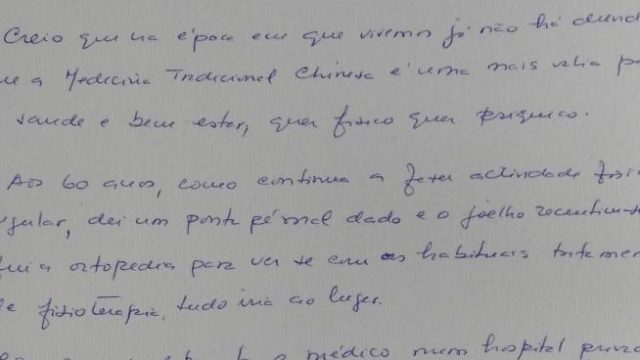 Creio que na época em que vivemos já não há
a Medicina Tradicional Chinesa é uma mais valia
saúde e bem estar, quer físico quer psíquico.
Aos 60 anos, como continua a fazer actividade
dei um ponta pé mal dado e o joelho
a ortopedia para ver se com os habituais
fisioterapia, tudo ia ao lugar.
médico num hospital